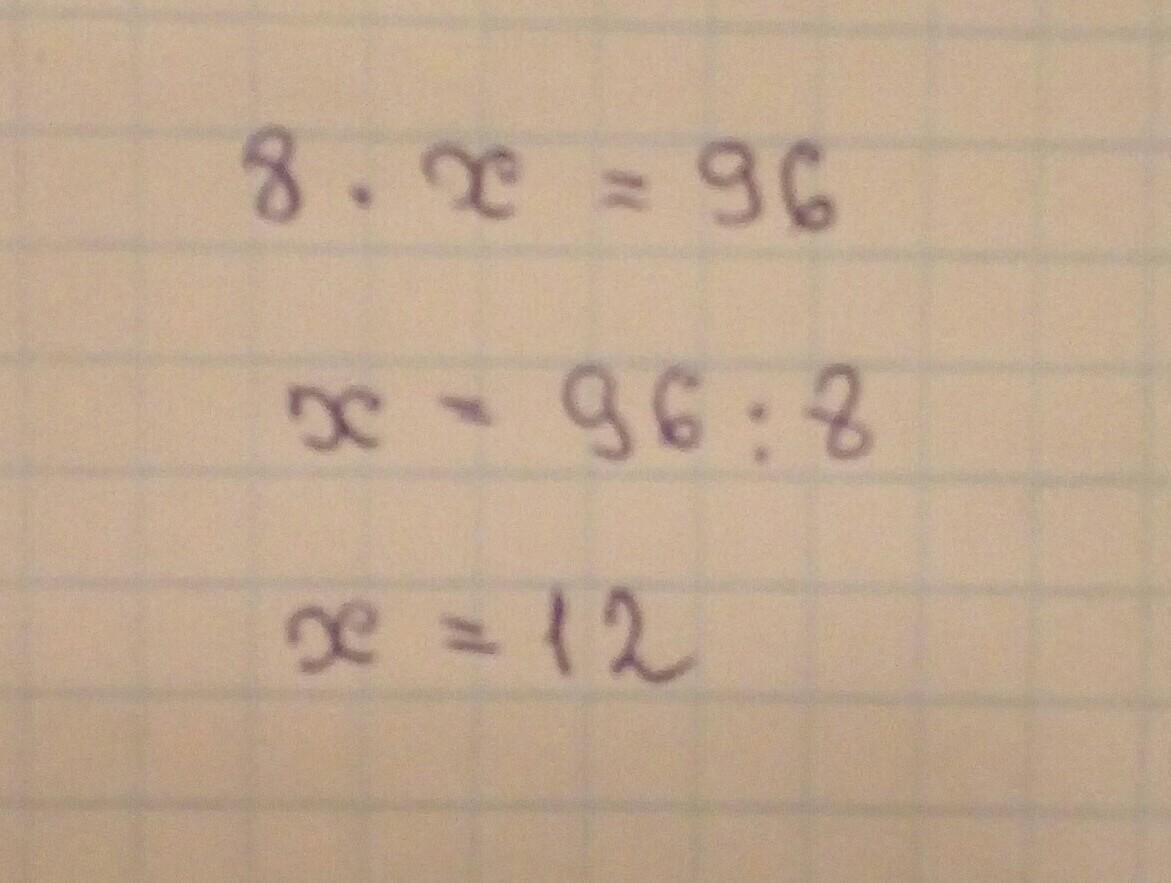 8 · x = 96
x - 96 : 8
x = 12